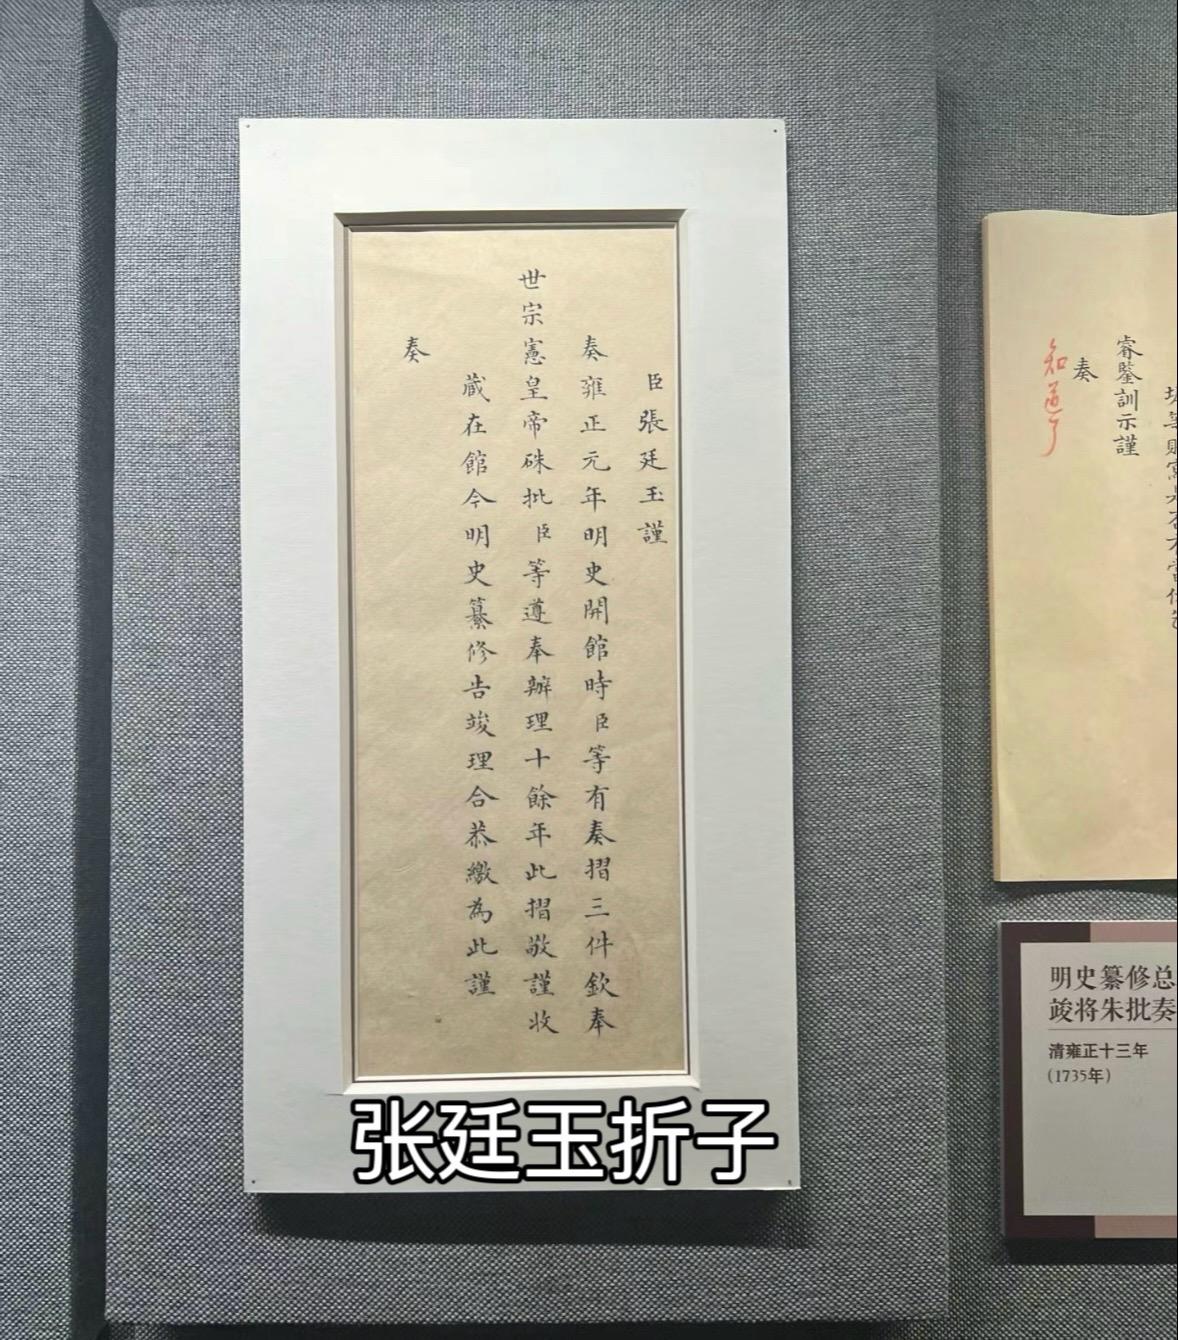 臣張廷玉謹
奏雍正元年明史開館時臣等有奏摺三件欽奉
世宗憲皇帝硃批臣等遵奉辦理十餘年此摺敬謹收
藏在館今明史纂修告竣理合恭繳為此謹
奏
睿鑒訓示謹
奏
知道了
明史纂修总
竣将朱批奏
清雍正十三年
(1735年)
张廷玉折子